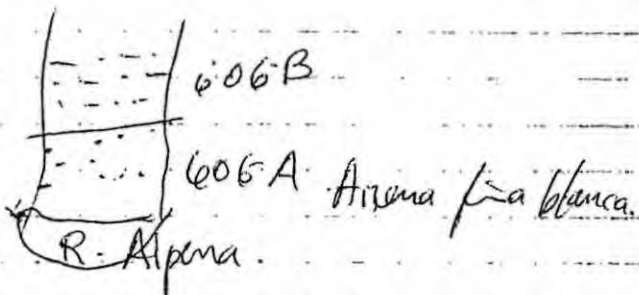 606B
606A Arena fina blanca.
R. Alpena.